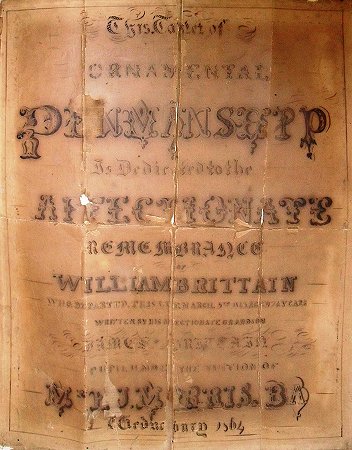 This Tablet of
ORNAMENTAL
PENMANSHIP
Is Dedicated to the
AFFECTIONATE
REMEMBRANCE
OF
WILLIAM BRITTAIN
WHO DEPARTED THIS LIFE MARCH AGED YEARS
WRITTEN BY HIS AFFECTIONATE GRANDSON
JAMES BRITTAIN
PUPIL UNDER THE TUITION OF
Mr. T. J. MORRIS, BA
Wednesbury 1864